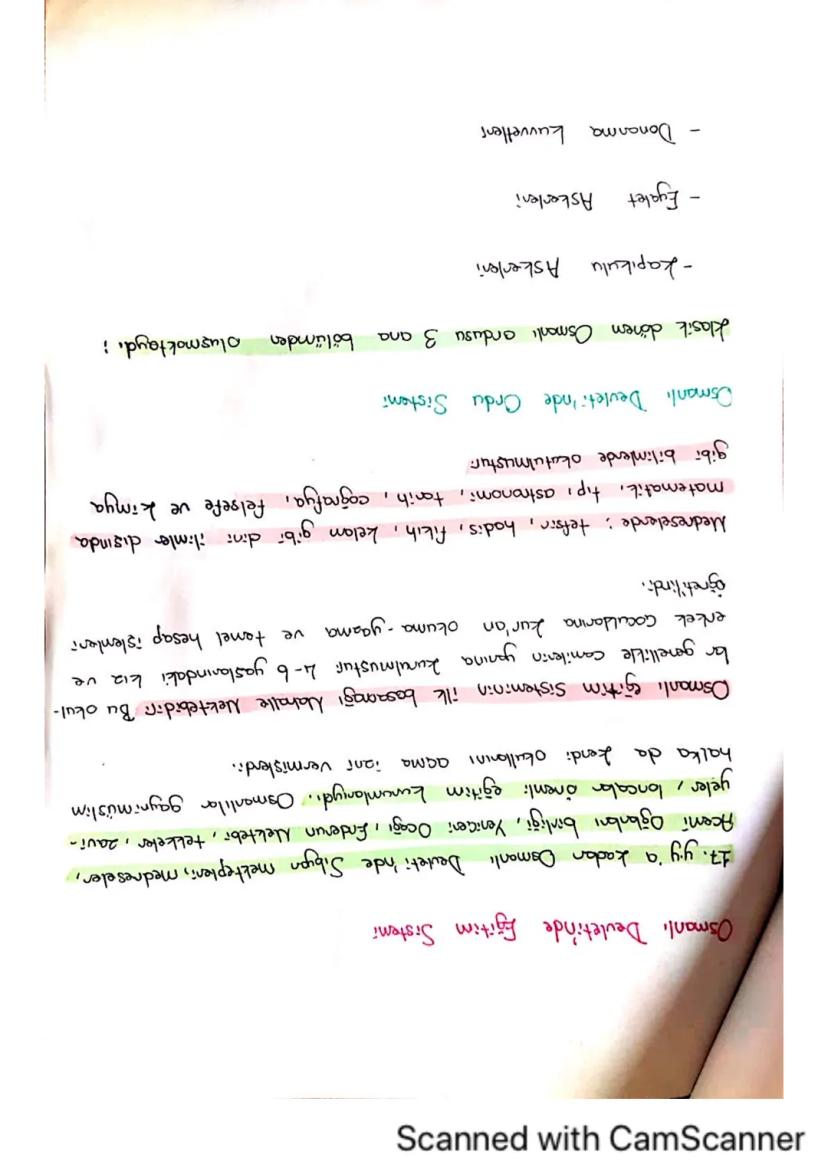 Osmanlı Devleti'nde Eğitim Sistemi
17. yy'a kadar Osmanlı Devleti'nde Sıbyan mektepleri, medreseler,
Acemi Oğlanları birliği, Yeniçeri Ocağı, Enderun Mektebi, tekkeler, zavi-
yeler, loncalar önemli eğitim kurumlarıydı. Osmanlılar gayrimüslim
halka da kendi okullarını açma izni vermişlerdi.
Osmanlı eğitim Sisteminin ilk basamağı Mahalle Mektebidir. Bu okul-
lar genellikle camilerin yanına kurulmuştur 4-6 yaşlarındaki kız ve
erkek çocuklarına kur'an okuma-yazma ve temel hesap işlemleri
öğretilirdi.
Medreselerde : tefsir, hadis, fıkıh, kelam gibi dini ilimler dışında
matematik, tıp, astronomi, tarih, coğrafya, felsefe ve kimya
gibi bilimlerde okutulmuştur.
Osmanlı Devleti'nde Ordu Sistemi
Klasik dönem Osmanlı ordusu 3 ana bölümden oluşmaktaydı :
- Kapıkulu Askerleri
- Eyalet Askerleri
- Donanma kuvvetleri
Scanned with CamScanner